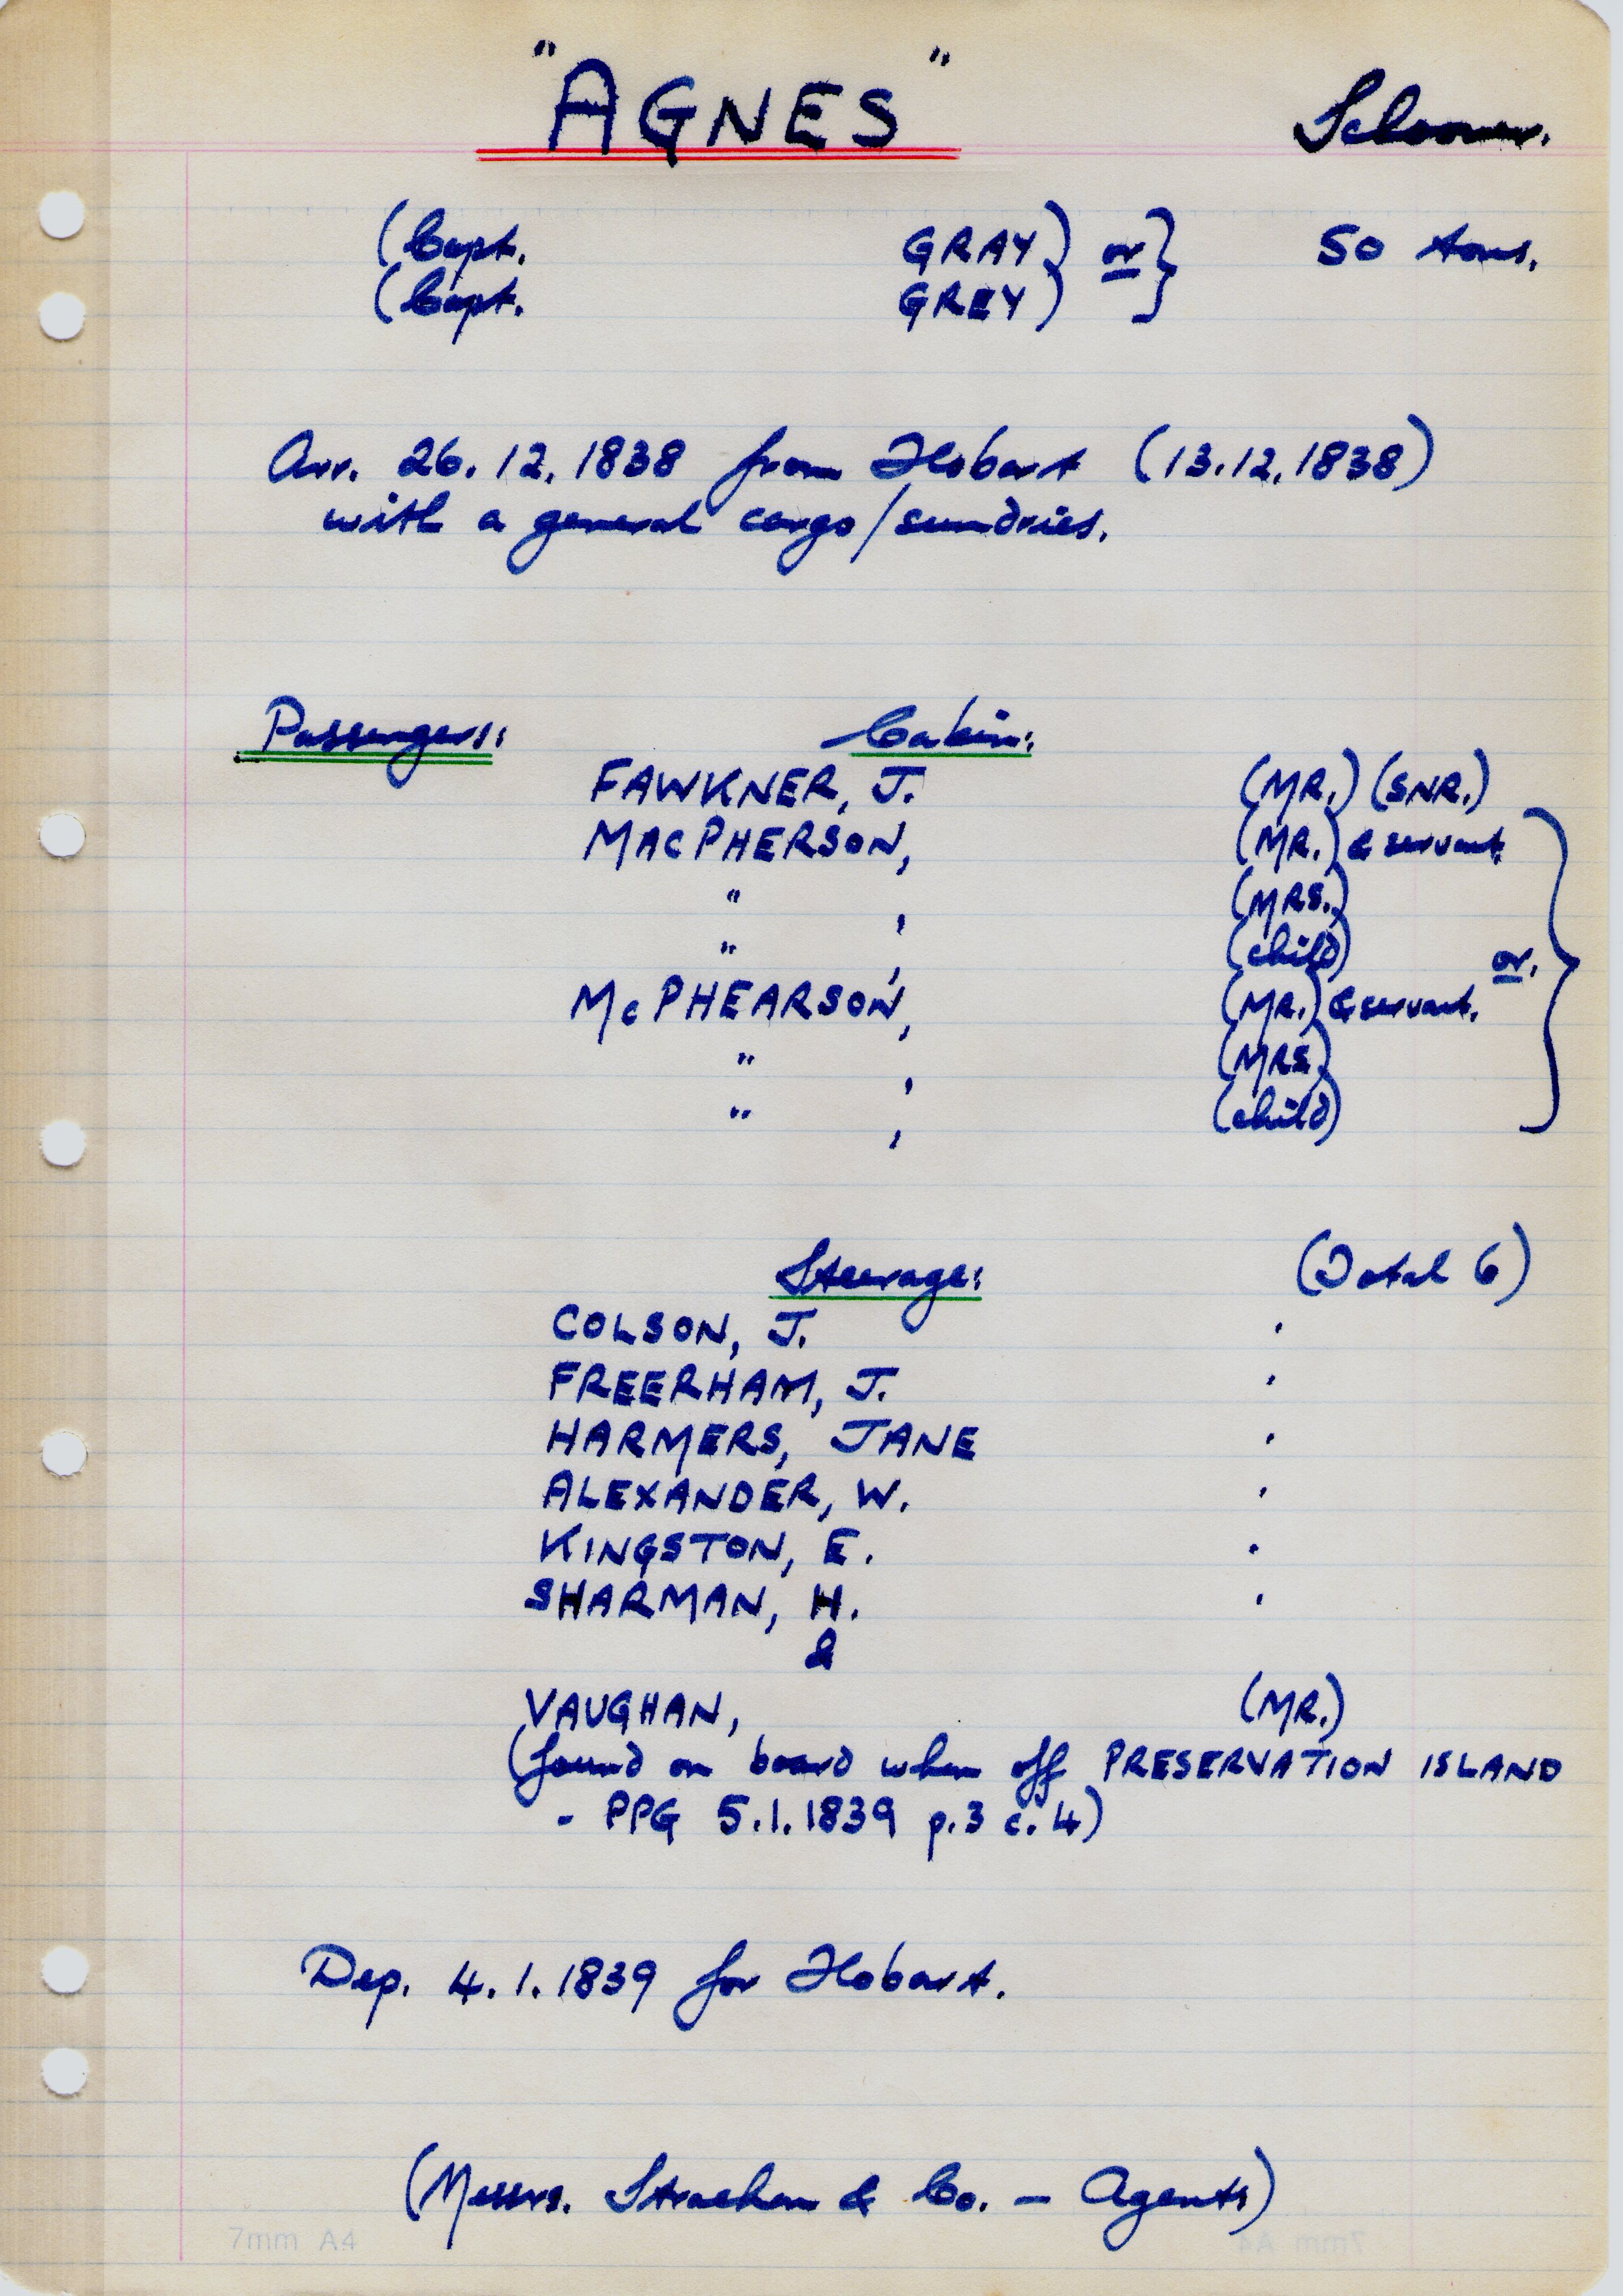 "AGNES" Schooner.
(Capt. GRAY) or } 50 tons.
(Capt. GREY) }
Arr. 26.12.1838 from Hobart (13.12.1838)
with a general cargo/sundries.
Passengers: Cabin:
FAWKNER, J. (MR.) (SNR.)
MACPHERSON, (MR.) & servant.
" , (MRS.)
" , (child) or.
McPHEARSON, (MR.) & servant.
" , (MRS.)
" , (child)
Steerage: (Total 6)
COLSON, J. .
FREERHAM, J. .
HARMERS, JANE .
ALEXANDER, W. .
KINGSTON, E. .
SHARMAN, H. .
&
VAUGHAN, (MR.)
(found on board when off PRESERVATION ISLAND
- PPG 5.1.1839 p.3 c.4)
Dep. 4.1.1839 for Hobart.
(Messrs. Strachan & Co. – Agents)
7mm A4